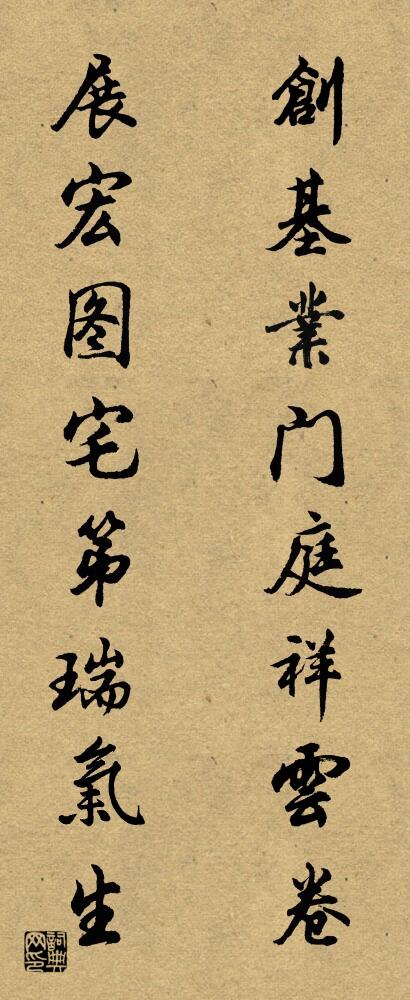 創基業门庭祥雲卷
展宏图宅第瑞氣生
詞典网印